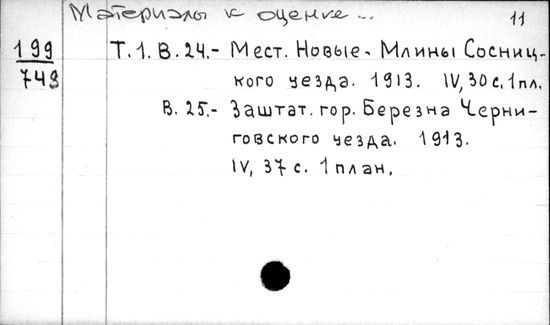 Материалы к оценке... 11
199 Т.1. В.24.- Мест. Новые- Млины Сосниц-
743 кого уезда. 1913. IV, 30 с. 1 пл.
В. 25.- Заштат. гор. Березна Черни-
говского уезда. 1913.
IV, 37 с. 1 план.